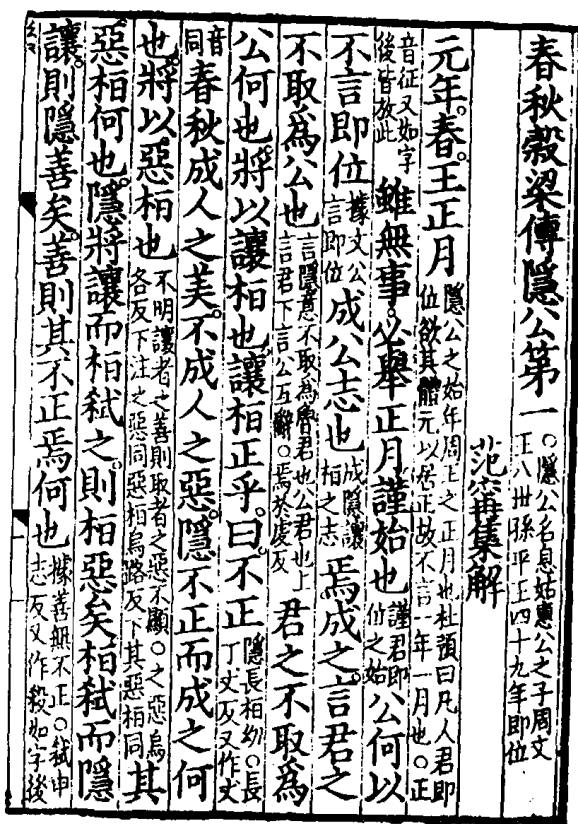 春秋穀梁傳隱公第一○隱公名息姑惠公之子周文王八丗孫平王四十九年即位
范甯集解
元年。春。王正月隱公之始年周王之正月也杜預曰凡人君即位欲其體元以居正故不言一年一月也○正
音征又如字後皆放此雖無事。必舉正月謹始也謹君即位之始公何以
不言即位據文公言即位成公志也成隱讓桓之志焉成之。言君之
不取爲公也言隱意不取爲魯君也公君也上言君下言公互辭○焉於虔反君之不取爲
公何也。將以讓桓也。讓桓正乎。曰。不正隱長桓幼○長丁丈反又作丈
音同春秋成人之美。不成人之惡。隱不正而成之何
也。將以惡桓也不明讓者之善則取者之惡不顯○之惡烏各反下注之惡同惡桓烏路反下其惡桓同其
惡桓何也。隱將讓而桓弒之。則桓惡矣。桓弒而隱
讓。則隱善矣。善則其不正焉何也據善無不正○弒申志反又作殺如字後